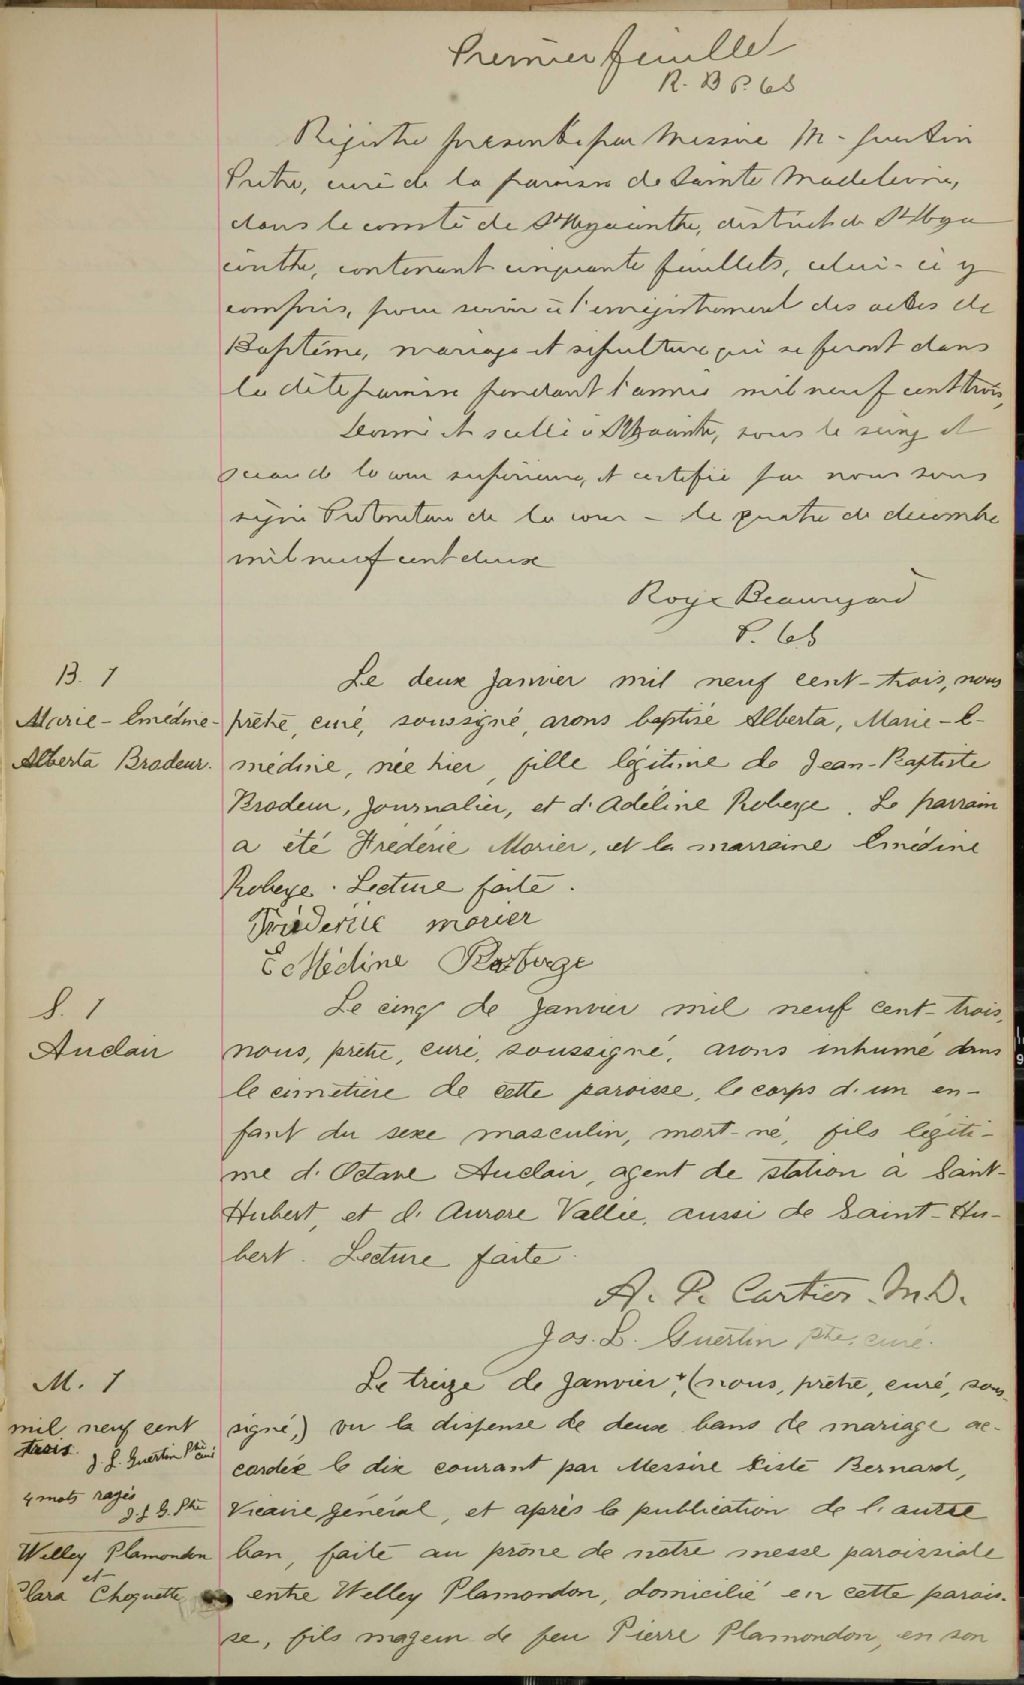 Premier feuillet
R. B P. C S
Registre presenté par Messire M. Guertin
Pretre, curé de la paroisse de Sainte Madeleine,
dans le comté de St Hyacinthe, district de St Hya
cinthe, contenant cinquante feuillets, celui-ci y
compris, pour servir à l'enregistrement des actes de
Baptême, mariage et sepulture qui se feront dans
la dite paroisse pendant l'année mil neuf cent trois,
Donné et scellé à St Hyacinthe, sous le seing et
sceau de la cour supérieure, et certifié par nous sous
signé Protonotaire de la cour - le quatre de décembre
mil neuf cent deux
Roy & Beauregard
P. C S
B. 1
Marie-Emédine-
Alberta Brodeur.
Le deux Janvier mil neuf cent-trois, nous
prêtre, curé, soussigné, avons baptisé Alberta, Marie-E-
médine, née hier, fille légitime de Jean-Baptiste
Brodeur, Journalier, et d'Adéline Roberge. Le parrain
a été Fréderic Morier, et la marraine Emédine
Roberge. Lecture faite.
Frideric morier
Emédine Roberge
S. 1
Auclair
Le cinq de Janvier mil neuf cent-trois,
nous, prêtre, curé, soussigné, avons inhumé dans
le cimetière de cette paroisse, le corps d'un en-
fant du sexe masculin, mort-né, fils légiti-
me d'Octave Auclair, agent de station à Saint-
Hubert, et d'Aurore Vallée, aussi de Saint-Hu-
bert. Lecture faite.
A. P. Cartier. M.D.
Jos. L. Guertin ptre, curé.
M. 1
mil neuf cent
trois. J. L. Guertin Ptre curé
4 mots rayés
J. L. G. Ptre
Welley Plamondon
et
Clara Choquette
Le treize de Janvier +, (nous, prêtre, curé, sous-
signé,) vu la dispense de deux bans de mariage ac-
cordée le dix courant par Messire Xiste Bernard,
Vicaire général, et après la publication de l'autre
ban, faite au prône de notre messe paroissiale
entre Welley Plamondon, domicilié en cette parois-
se, fils majeur de feu Pierre Plamondon, en son